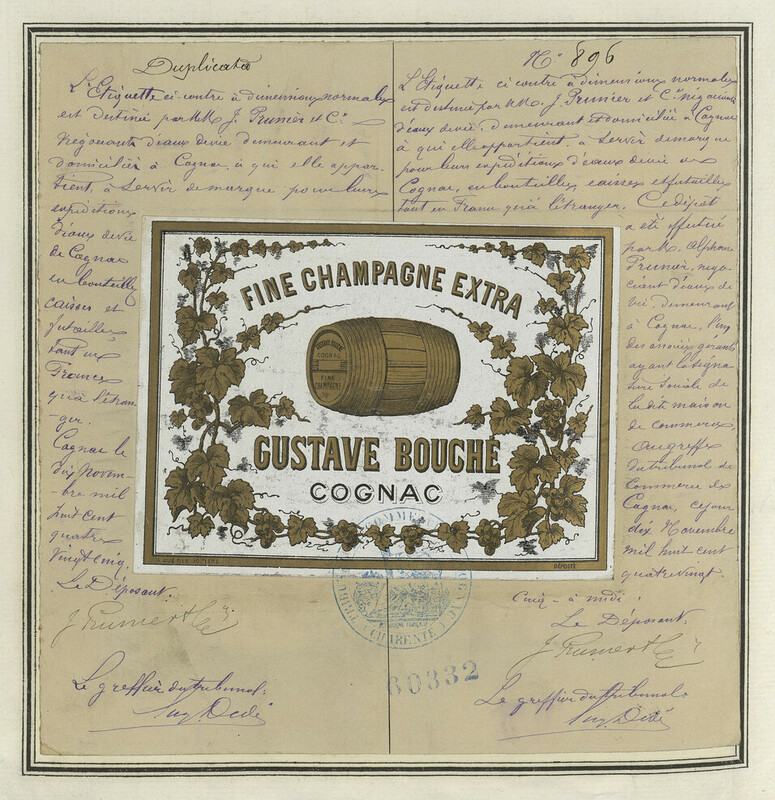 Duplicata
L'Etiquette ci-contre à dimensions normales
est destinée par MM. J. Prunier et Cie
négociants d'eaux de vie demeurant et
domiciliés à Cognac, à qui elle appar-
tient, à servir de marque pour leurs
expéditions
d'eaux de vie
de Cognac
en bouteilles
caisses et
futailles
tant en
France
qu'à l'étran-
ger.
Cognac le
dix novem-
bre mil
huit cent
quatre
vingt cinq
Le Déposant.
J. Prunier & Cie
Le greffier du tribunal.
No 896
L'Etiquette ci contre à dimensions normales
est destinée par MM. J. Prunier et Cie négociants
d'eaux de vie, demeurant et domiciliés à Cognac
à qui elle appartient, à servir de marque
pour leurs expéditions d'eaux de vie de
Cognac, en bouteilles caisses et futailles
tant en France qu'à l'étranger. Ce dépôt
a été effectué
par M. Alphonse
Prunier, négo-
ciant d'eaux de
vie demeurant
à Cognac, l'un
des associés gérants
ayant la signa-
ture sociale de
la dite maison
de commerce,
au greffe
du tribunal de
Commerce de
Cognac, ce jour
dix Novembre
mil huit cent
quatre vingt
cinq - à midi.
Le Déposant.
J. Prunier & Cie
Le greffier du tribunal.
FINE CHAMPAGNE EXTRA
GUSTAVE BOUCHÉ
COGNAC
FINE
CHAMPAGNE
GUSTAVE BOUCHÉ
COGNAC
DÉPOSÉ
CHARENTE
60332